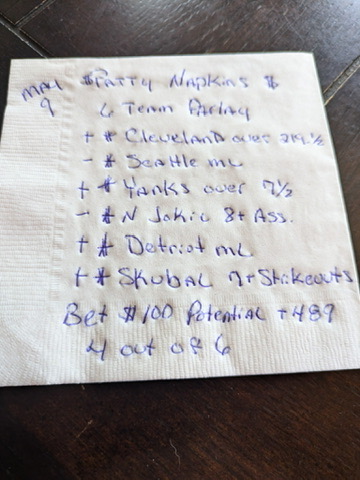 May 9
$Patty Napkins $
6 Team Parlay
+ # Cleveland over 219 1/2
- # Seattle mL
+ # Yanks over 7 1/2
- # N Jokic 8+ Ass.
+ # Detroit mL
+ # Skubal 7+ Strikeouts
Bet $100 Potential +489
4 out of 6